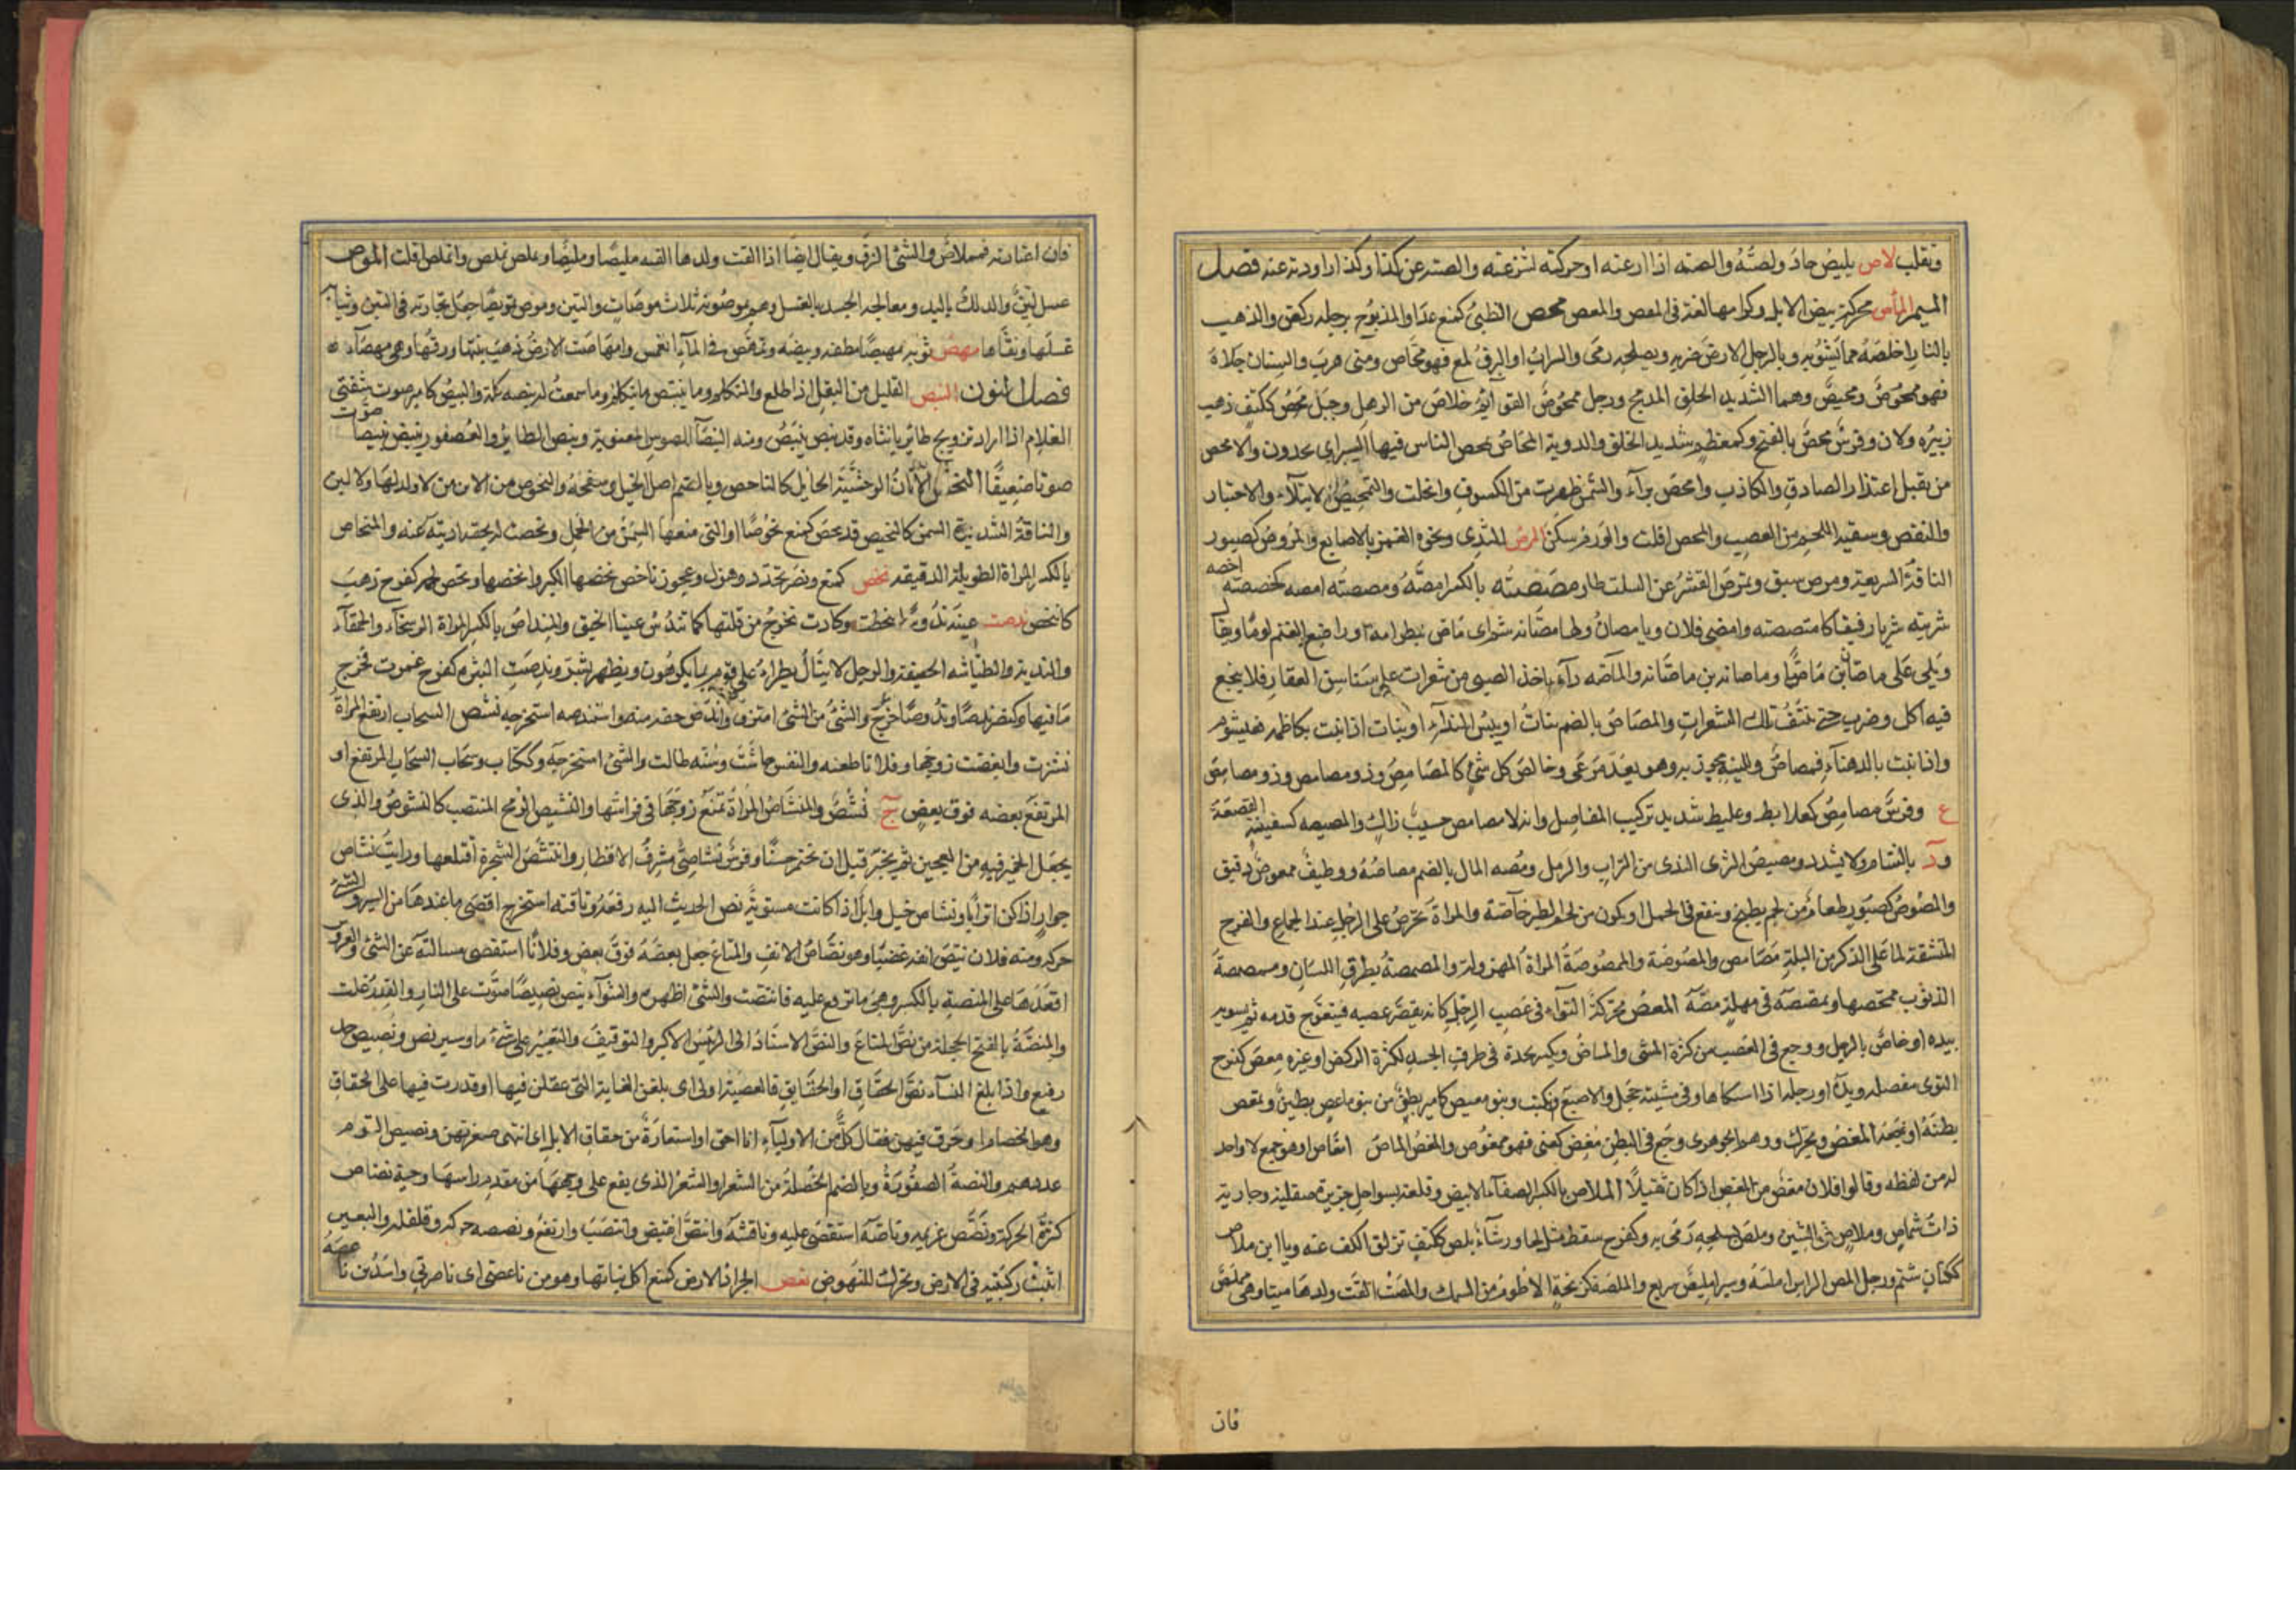 وتقلب لاص يليص حاد ولصته والصته اذا ارعته او حركته لتنزعته والصته عن كذا وكذا راودته عنه فصل
الميم المأص محركة بيض الابل وكرامها لغة فى المعص والمغص محص الظبى كمنع عدا والمذبوح برجله ركض والذهب
بالنار اخلصه مما يشوبه وبالرجل الارض ضربه وبسلحه رمى والسراب او البرق لمع فهو محاص ومنى هرب والسنان جلاه
فهو محوص ومحيص وهما الشديد الخلق المدمج ورجل ممحوص القوائم خلاص من الرهل وحبل محص ككتف ذهب
زبيره ولان وفرس محص بالفتح وكمعظم شديد الخلق والدوية المحاص محص الناس فيها السير اى يجدون والامحص
من يقبل اعتذار الصادق والكاذب وامحص برأ والشمس ظهرت من الكسوف وانجلت والتمحيص الابتلاء والاختبار
والنقص وتنقية اللحم من العصب وانمحص افلت والورم سكن المرص للثدى ونحوه الغمز بالاصابع والمروص كصبور
الناقة السريعة ومرص سبق وتمرص القشر عن السلت طار مصصته بالكسر امصه ومصصته امصه كخصصته اخصه
شربته شربا رفيقا كامتصصته وامصنى فلان ويا مصان ولها مصانة شتم اى ماص بظر امه او راضع الغنم لوما ويقال
ويلى على ماصان بن ماصان وماصانة بن ماصانة والماصة داء ياخذ الصبى من شعرات على سناسن الفقار فلا ينجع
فيه اكل وشرب حتى تنتف تلك الشعرات والمصاص بالضم نبات او يبيس الثداء او نبات اذا نبت بكاظمة فقيثوم
واذا نبت بالدهناء فمصاص وللينه يخرز به وهو يعد مرعى وخالص كل شئ كالمصامص وذو مصامص وذو مصاميص
ع وفرس مصامص كعلابط وعليط شديد تركيب المفاصل وانه لمصامص حسيب زاك والمصيصه كسفينة القصعة
ود بالشام ولا يشدد ومصيص الثرى الندى من التراب والرمل ومصه المال بالضم مصاصه ووظيف ممصوص دقيق
والمصوص كصبور طعام من لحم يطبخ وينقع فى الخل او يكون من لحم الطير خاصة والمراة تحرص على الرجل عند الجماع والفرج
المنشفة لما على الذكر من البلة مصائص والمصوصة والممصوصة المراة المهزولة والمصمصة بطرف اللسان ومصمصه
الذنوب ممحصها وتمصصه فى مهلة مصه المعص محركة التواء فى عصب الرجل كانه يقصر عصبه فيتعوج قدمه ثم يسويه
بيده او خاص بالرجل ووجع فى العصب من كثرة المشى والماص وتكسر يجده فى طرف الجسد لكثرة الركض او غيره معص كفرح
التوى مفصله ويده او رجله اذا اشتكاها وفى مشيته حجل والاصبع نكبت وبنو معيص كامير بطن من وبنو ماعص بطين وتمعص
بطنه اوجعه المغص ويحرك ووهم الجوهرى وجع فى البطن مغص كعنى فهو ممغوص والمغص الماص امغاص او هو جمع لا واحد
له من لفظه وقالوا فلان مغص من المغص اذا كان ثقيلا الملاص بالكسر الصفاء الابيض وقلعة بسواحل جزيرة صقلية وجارية
ذات شماص وملاص فى الشين وملص بسلحه رمى به وكفرح سقط متزلجا ورشاء ملص ككتف تزلق الكف عنه ويا ابن ملاص
ككتان شتم ورجل املص الراس املسه وسير امليص سريع والملصة كزنخة الاطوم من السمك واملصت القت ولدها ميتا وهى مملص
فان
فان اعتادته فمملاص والشئ ازلق ويقال ايضا اذا القت ولدها القته مليصا ومليطا وتملص تملص وانملص افلت الموص
غسل لين والدلك باليد ومعالجه الجسد بالغسل وهم يموصونه ثلاث موصات والتبن وموص تمويصا جعل تجارته فى التبن وثيابه
غسلها ونقاها مهص ثوبه تمهيصا نظفه وبيضه وتمهص فى الماء انغمس وامهاصت الارض ذهب نبتها ورقها وهى مهصاء
فصل النون النبص القليل من البقل اذا طلع والمتكلم وما ينبص ما يتكلم وما سمعت له نبصه كلمة والنبيص كامير صوت شفتى
الغلام اذا اراد تزويج طائر بانثاه وقد نبص ينبص ومنه النبصاء للقوس المصوته ونبص الطاير والعصفور ينبض نبيصا صوت
صوتا ضعيفا النحص الاتان الوحشية الحايل كالناحص وبالضم اصل الجبل وسفحه والنحوص من الاتن من لا ولد لها ولا لبن
والناقة الشديدة السمن كالنحيص قد نحص كمنع نحوصا او التى منعها السمن من الحمل ونحصت له بحقه اديته عنه والمنحاص
بالكسر المراة الطويلة الدقيقه نخص كمنع ونصر تخدد وهزل وعجوز ناخص نخصها الكبر وانخصها ونخص لحمه كفرح ذهب
كانتخص ندصت عينه ندوصا جحظت وكادت تخرج من قلتها كما تندص عينا الخنيق والمنداص بالكسر المراة الرسحاء والحمقاء
والبذية والطياشه الخفيفة والرجل لا يزال يطرا على قوم بما يكرهون ويظهر بشر وندصت البثره كفرح غمرت فخرج
ما فيها وكنصر ندصا وندوصا خرج والشئ من الشئ امتزق وانداص حقه منه واستندصه استخرجه نشص السحاب ارتفع المراة
نشزت وابغضت زوجها وفلانا طعنه والنفس جاشت وسنه طالت والشئ استخرجه وككتاب وسحاب السحاب المرتفع او
المرتفع بعضه فوق بعض ج نشص والمنشاص المراة تمنع زوجها فى فراشها والنشيص الرمح المنتصب كالنشوص والذى
يجعل الخمير فيه من العجين ثم يخبز قبل ان يختمر حسنا وفرس نشاصى مشرف الاقطار وانتشص الشجرة اقتلعها ورايت نشاص
جوار اذا كن اترابا ونشاص خيل وابل اذا كانت مستوية نص الحديث اليه رفعه وناقته استخرج اقصى ما عندها من السير والشئ
حركه ومنه فلان ينص انفه غضبا وهو نصاص الانف والمتاع جعل بعضه فوق بعض وفلانا استقصى مسالته عن الشئ والعروس
اقعدها على المنصة بالكسر وهى ما ترفع عليه فانتصت والشئ اظهره والشواء ينص نصيصا صوت على النار والقدر غلت
والمنصة بالفتح الحجلة من نص المتاع والنص الاسناد الى الرئيس الاكبر والتوقيف والتعيير على شئ ما وسير نص ونصيص جد
رفيع واذا بلغ النساء نص الحقاق او الحقايق فالعصبة اولى اى بلغن الغاية التى عقلن فيها او قدرت فيها على الحقاق
وهو الخصام او حوق فيهن فقال كل من الاولياء انا احق او استعارة من حقاق الابل اى انتهى صغرهن ونصيص القوم
عددهم والنصة العصفورة وبالضم الخصلة من الشعر او الشعر الذى يقع على وجهها من مقدم راسها وحية نصناص
كثيرة الحركة ونصص غريمه وناصه استقصى عليه وناقشه وانتص انقبض وانتصب وارتفع ونصنصه حركه وقلقله والبعير
اثبت ركبتيه فى الارض وتحرك للنهوض نعص الجراد الارض كمنع اكل نباتها وهو من ناعصتى اى ناصرتى واسد بن ناعصة